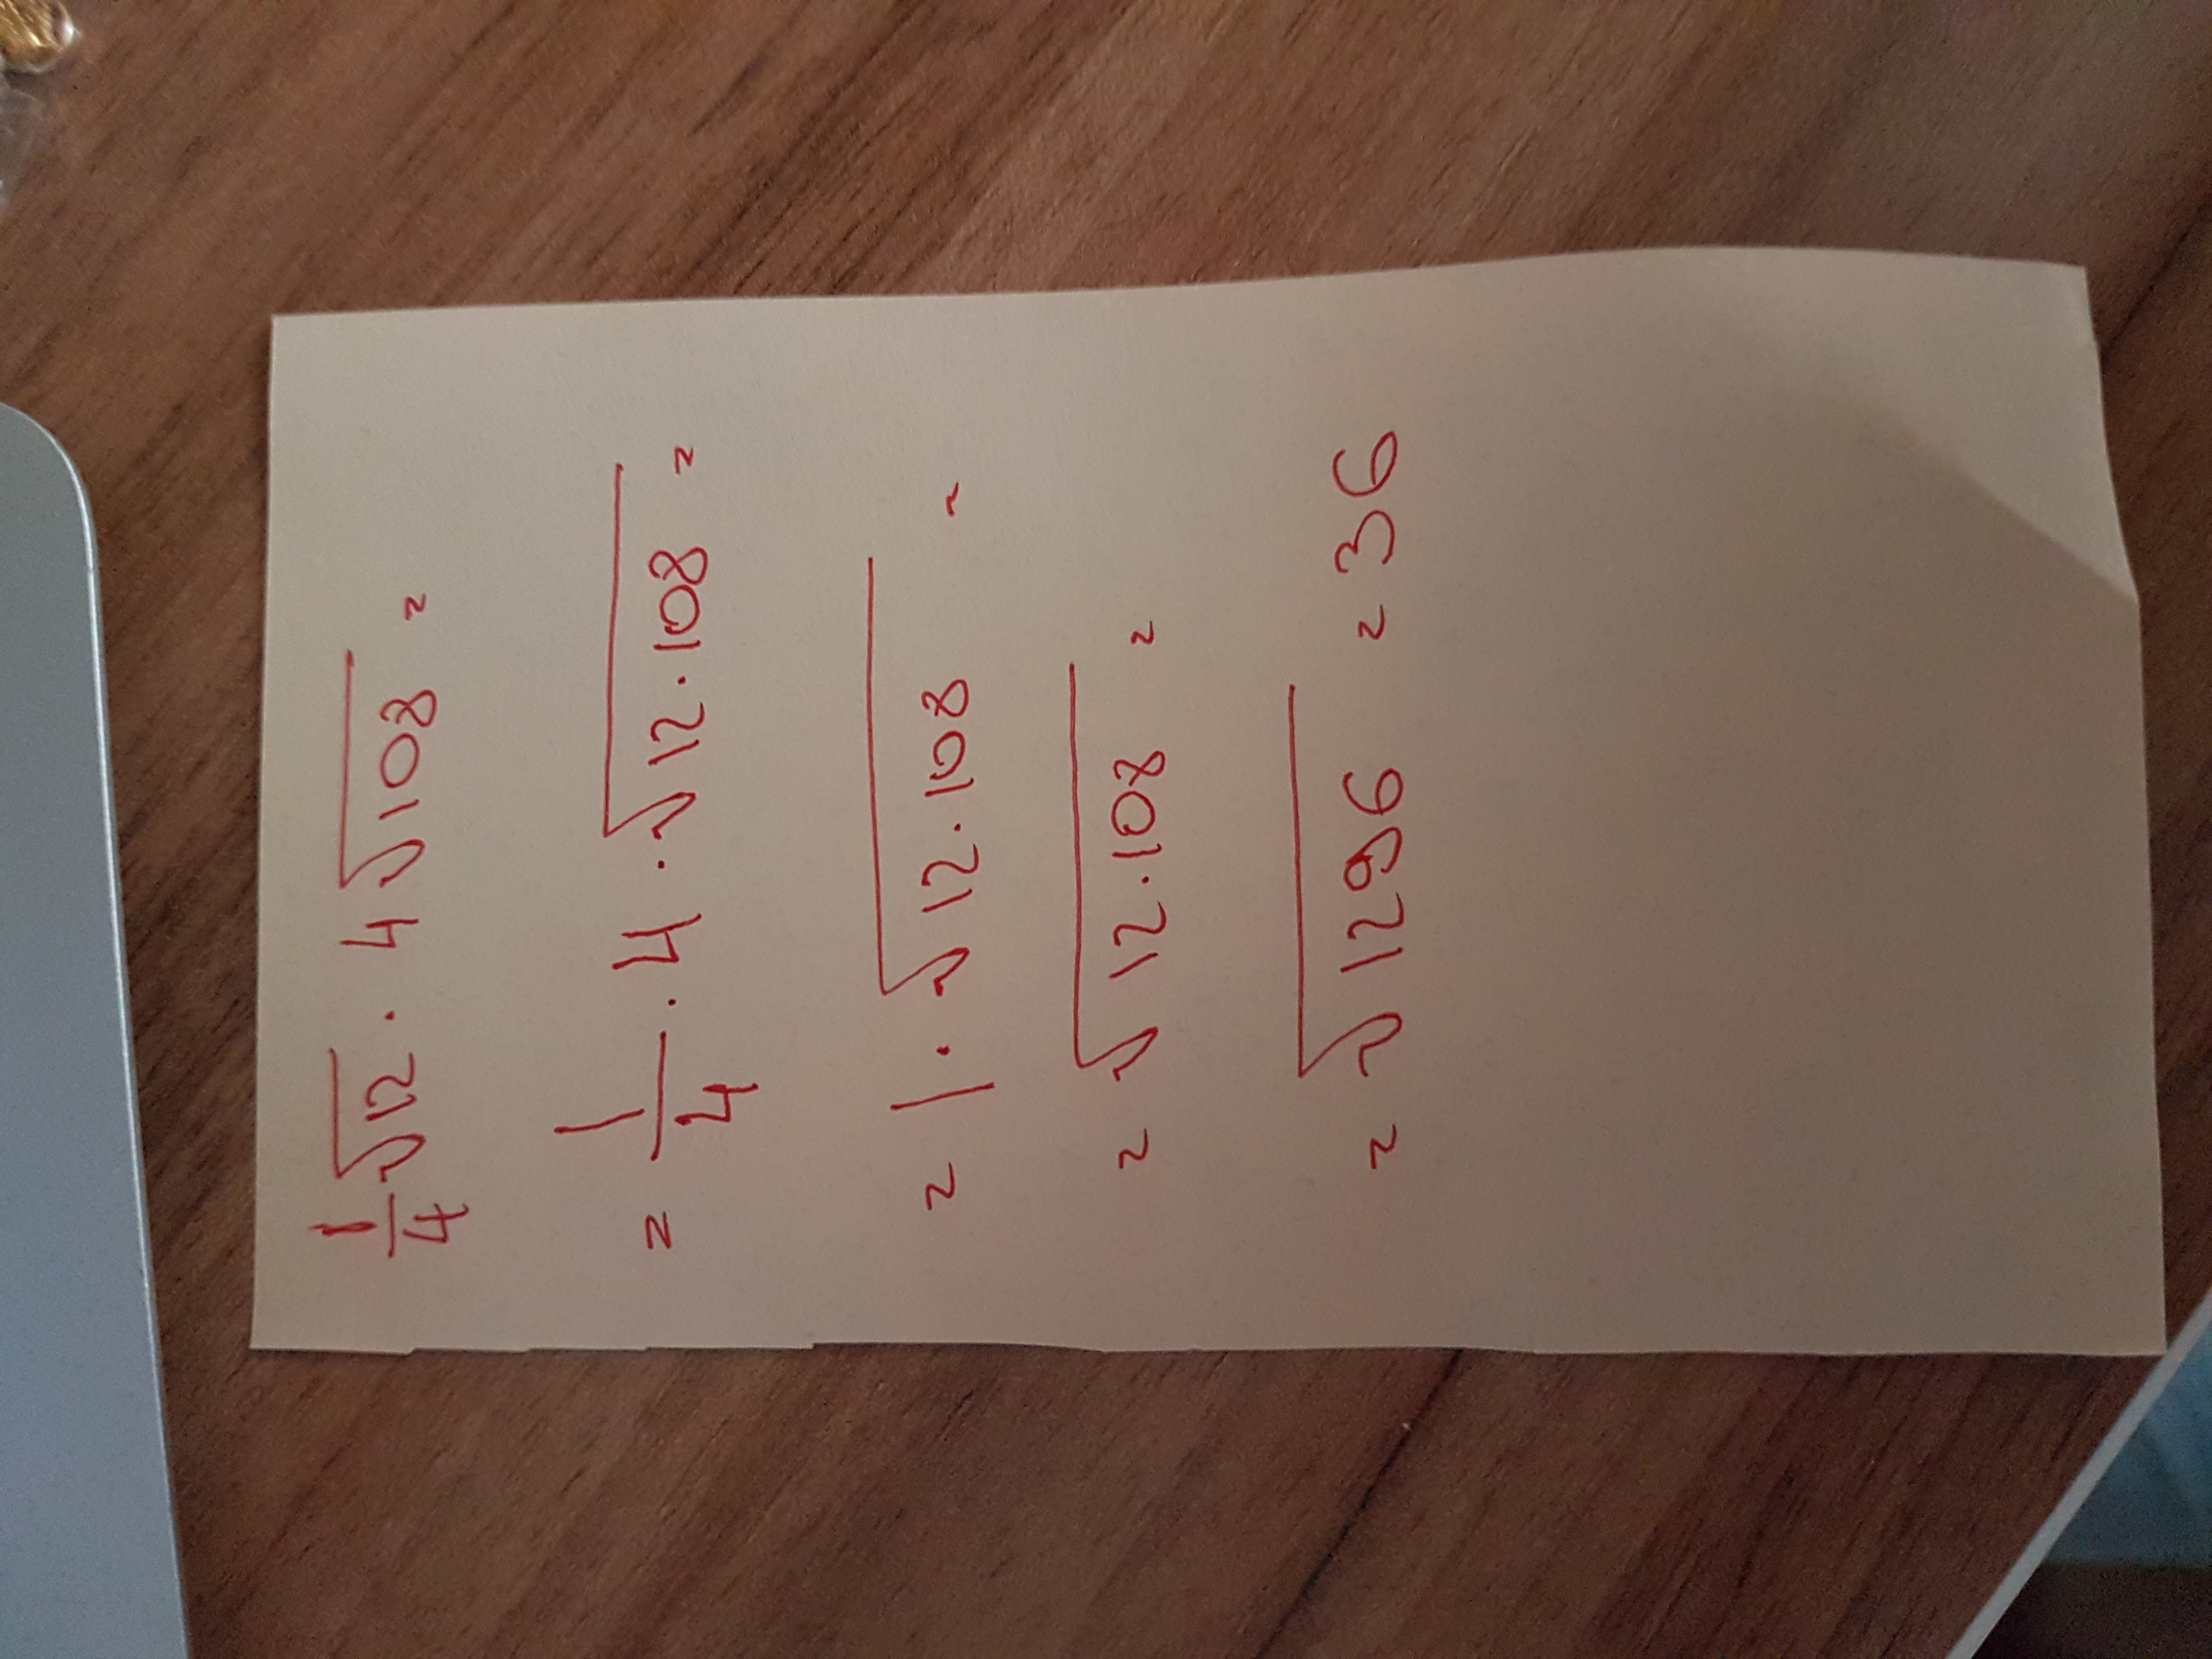 1/4 √12 · 4√108 =
= 1/4 · 4 · √12·108 =
= 1 · √12·108 =
= √12·108 =
= √1296 = 36